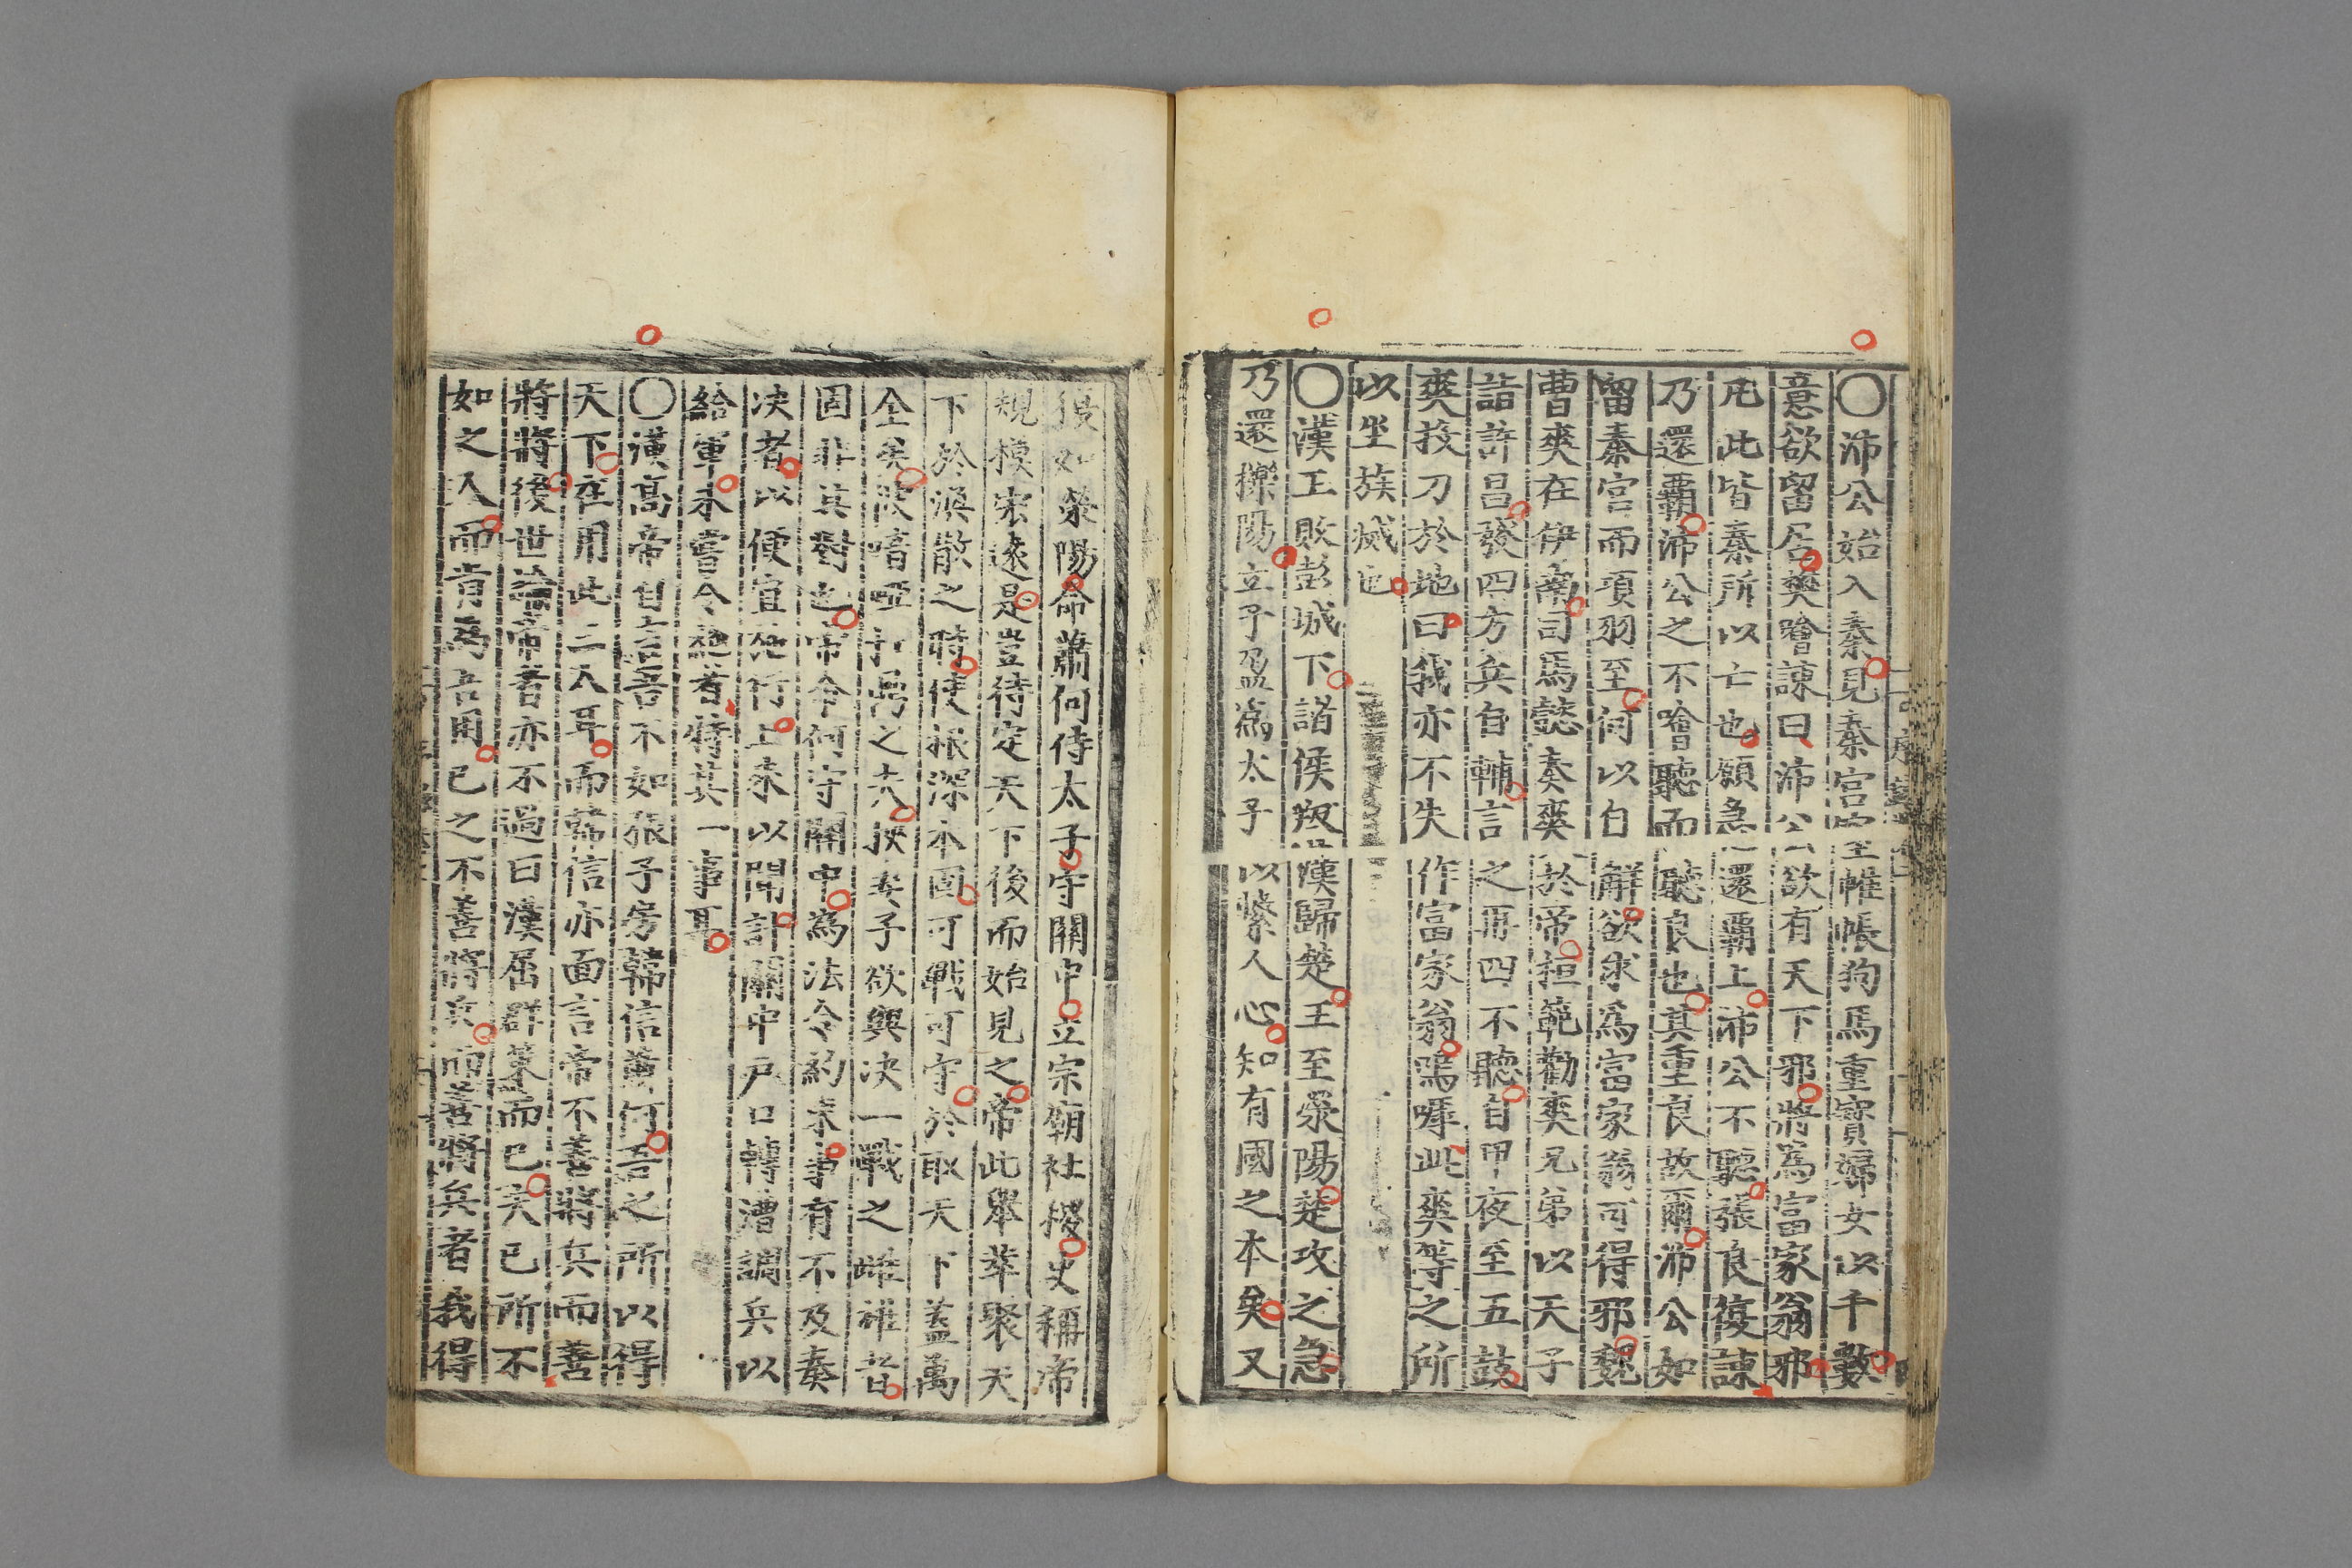 〇沛公始入秦見秦宮室帷帳狗馬重寶婦女以千數
意欲留居樊噲諫曰沛公欲有天下邪將爲富家翁邪
凡此皆秦所以亡也願急還霸上沛公不聽張良復諫
乃還霸沛公之不噲聽而聽良也其重良故爾沛公如
留秦宮而項羽至何以自解欲求爲富家翁可得邪魏
曹爽在伊南司馬懿奏爽於帝桓範勸爽兄弟以天子
詣許昌發四方兵自輔言之再四不聽自甲夜至五鼓
爽投刀於地曰我亦不失作富家翁嗚嘑此爽等之所
以坐族威也
〇漢王敗彭城下諸侯叛漢歸楚王至滎陽楚攻之急
乃還櫟陽立子盈爲太子以繫人心知有國之本矣又
復如滎陽命蕭何侍太子守關中立宗廟社稷史稱帝
規模宏遠是豈待定天下後而始見之帝此舉萃聚天
下於渙散之時使根深本固可戰可守於取天下蓋萬
全矣彼喑啞扛禺之夫挾妻子欲與決一戰之雌雄者
固非其對也帝令何守關中爲法令約束事有不及奏
決者以便宜施行上來以聞計關中戶口轉漕調兵以
給軍未嘗令他者特其一事耳
〇漢高帝自言吾不如張子房韓信蕭何吾之所以得
天下在用此三人耳而韓信亦面言帝不善將兵而善
將將後世論帝者亦不過曰漢屈群策而已矣已所不
如之人而肯爲吾用已之不善將兵而善將兵者我得